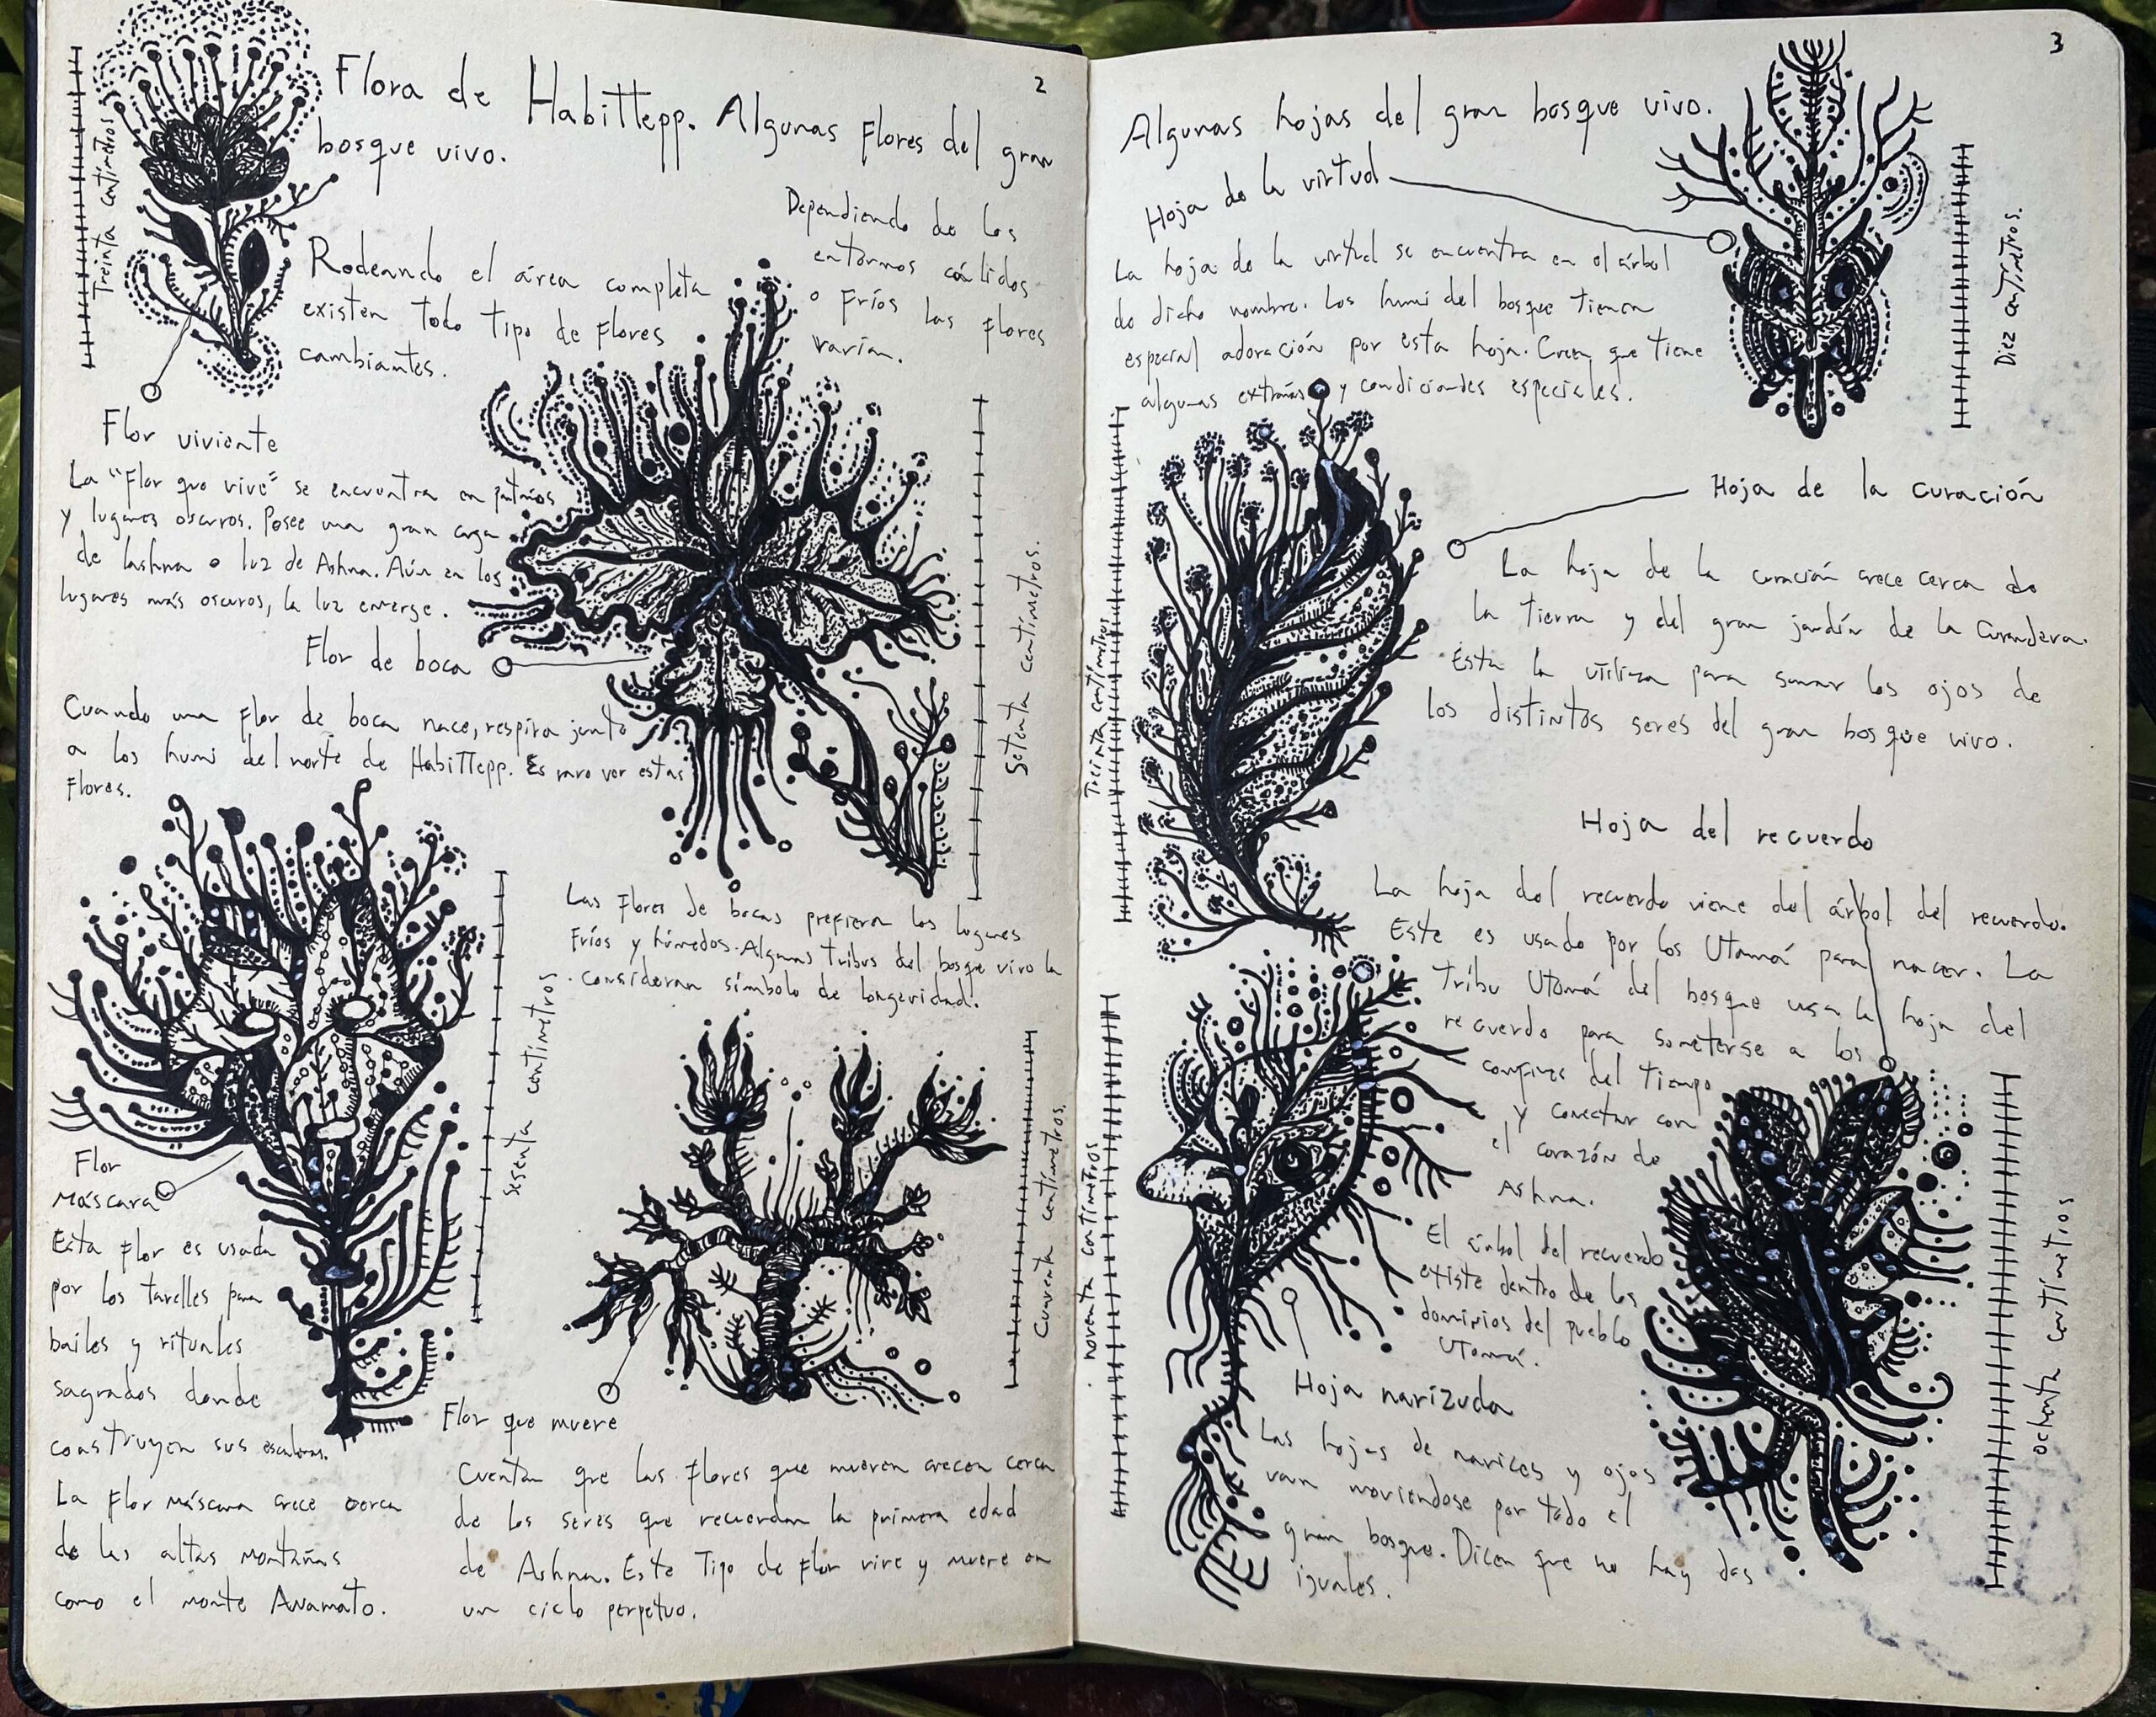 2
Flora de Habittepp. Algunas Flores del gran
bosque vivo.
Treinta centímetros
Rodeando el área completa
existen todo tipo de Flores
cambiantes.
Dependiendo de los
entornos cálidos
o fríos las flores
varían.
Flor viviente
La "Flor que vive" se encuentra en
y lugares oscuros. Posee una gran carga
de lashna o luz de Ashna. Aún en los
lugares más oscuros, la luz emerge.
Flor de boca
Setenta centímetros.
Cuando una flor de boca nace, respira junto
a los humi del norte de Habittepp. Es raro ver estas
Flores.
Las flores de bocas prefieren los lugares
fríos y húmedos. Algunas tribus del bosque vivo la
consideran símbolo de longevidad.
sesenta centímetros
Flor
máscara
Esta flor es usada
por los tarelles para
bailes y rituales
sagrados donde
construyen sus
La flor máscara crece cerca
de las altas montañas
como el monte Anamato.
Cuarenta centímetros.
Flor que muere
Cuentan que las flores que mueren crecen cerca
de los seres que recuerdan la primera edad
de Ashna. Este tipo de flor vive y muere en
un ciclo perpetuo.
3
Algunas hojas del gran bosque vivo.
Hoja de la virtud
La hoja de la virtud se encuentra en el árbol
de dicho nombre. Los humi del bosque tienen
especial adoración por esta hoja. Creen que tiene
algunas extrañas y condiciondes especiales.
Diez centímetros.
Hoja de la curación
Treinta centímetros
La hoja de la curación crece cerca de
la tierra y del gran jardín de la Curandera.
Esta la utiliza para sanar los ojos de
los distintos seres del gran bosque vivo.
Hoja del recuerdo
La hoja del recuerdo viene del árbol del recuerdo.
Este es usado por los Utamá para nacer. La
tribu Utamá del bosque usa la hoja del
recuerdo para someterse a los
confines del tiempo
y conectar con
el corazón de
Ashna.
El árbol del recuerdo
existe dentro de los
dominios del pueblo
Utamá.
ochenta centímetros
noventa centímetros
Hoja narizuda
Las hojas de narices y ojos
van moviendose por todo el
gran bosque. Dicen que no hay dos
iguales.